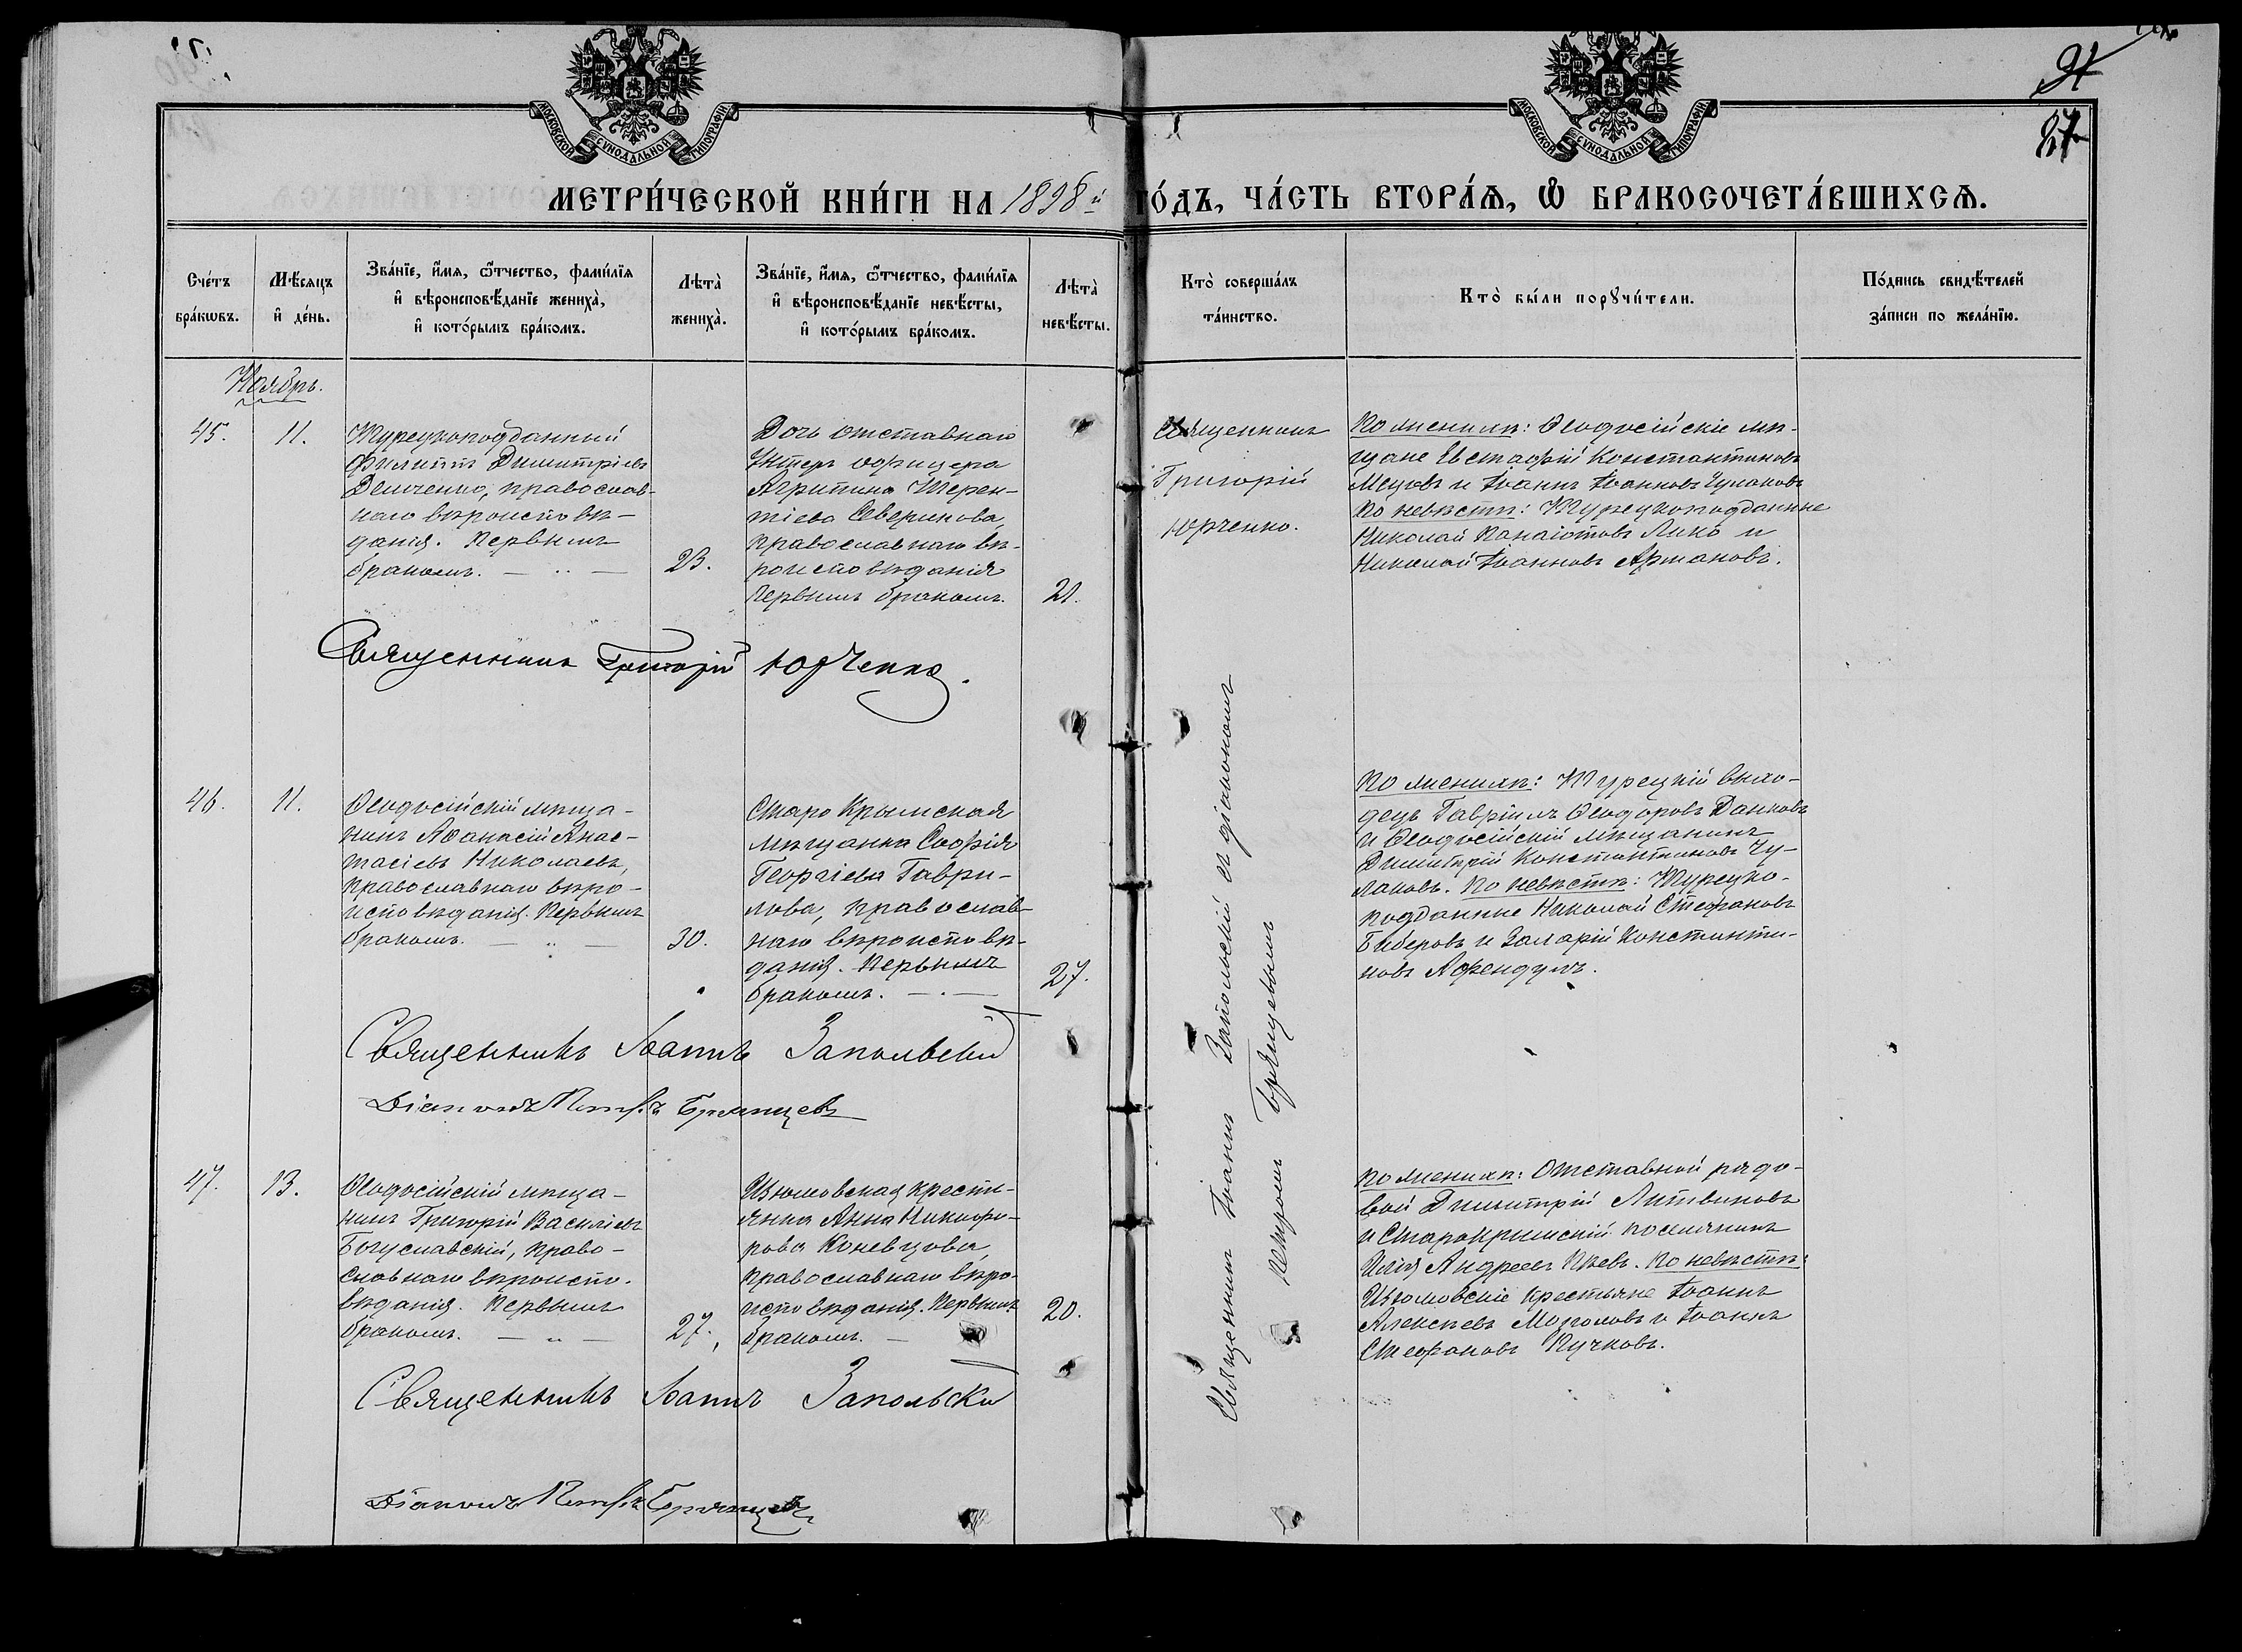 91
87
МОСКОВСКОЙ СѴНОДАЛЬНОЙ ТИПОГРАФІИ
МОСКОВСКОЙ СѴНОДАЛЬНОЙ ТИПОГРАФІИ
МЕТРИ́ЧЕСКОЙ КНИ́ГИ НА 1898й ГО́ДЪ, ЧА́СТЬ ВТОРА́Ѧ, Ѽ БРАКОСОЧЕТА́ВШИХСѦ.
Сче́тъ
бра́кѡвъ.
Мѣ́сяцъ
и҆ де́нь.
Зва́нїе, и҆́мя, ѻ҆́тчество, фами́лїя
и҆ вѣроисповѣ́данїе жениха̀,
и҆ кото́рымъ бра́комъ.
Лѣта̀
жениха̀.
Зва́нїе, и҆́мя, ѻ҆́тчество, фами́лїя
и҆ вѣроисповѣ́данїе невѣ́сты,
и҆ кото́рымъ бра́комъ.
Лѣта̀
невѣ́сты.
Кто̀ соверша́лъ
та́инство.
Кто̀ бы́ли порꙋчи́тели.
По́дпись свидѣ́телей
за́писи по жела́нїю.
Ноябрь.
45.
11.
Турецкоподданный
Филиппъ Димитріевъ
Демченко, православ-
наго вѣроисповѣ-
данія. Первымъ
бракомъ.
23.
Дочь отставнаго
Унтеръ офицера
Агрипина Терен-
тіева Северинова,
православнаго вѣ-
роисповѣданія
Первымъ бракомъ.
21.
Священникъ
Григорій
Юрченко.
По женихѣ: Ѳеодосійскіе мѣ-
щане Евстафій Константиновъ
Мецовъ и Іоаннъ Іоанновъ Чулаковъ
По невѣстѣ: Турецкоподданные
Николай Панаіотовъ Лико и
Николай Іоанновъ Армановъ.
Священникъ Григорій Юрченко.
46.
11.
Ѳеодосійскій мѣща-
нинъ Аѳанасій Анас-
тасіевъ Николаевъ,
православнаго вѣро-
исповѣданія. Первымъ
бракомъ.
30.
Старо Крымская
мѣщанка Софія
Георгіева Гаври-
лова, православ-
наго вѣроисповѣ-
данія. Первымъ
бракомъ.
27.
Священникъ Іоаннъ Запольскій съ діакономъ
Петромъ Брянцевымъ
По женихѣ: Турецкій выхо-
децъ Гавріилъ Ѳеодоровъ Данковъ
и Ѳеодосійскій мѣщанинъ
Димитрій Константиновъ Чу-
лаковъ. По невѣстѣ: Турецко-
подданные Николай Стефановъ
Биберовъ и Захарій Константи-
новъ Афендулъ.
Священникъ Іоаннъ Запольскій
Діаконъ Петръ Брянцевъ
47.
13.
Ѳеодосійскій мѣща-
нинъ Григорій Василіевъ
Богуславскій, право-
славнаго вѣроиспо-
вѣданія. Первымъ
бракомъ.
27.
Изюмовская крестья-
янка Анна Никифо-
рова Коневцова,
православнаго вѣро-
исповѣданія. Первымъ
бракомъ.
20.
По женихѣ: Отставной рядо-
вой Димитрій Литвиновъ
и Старокрымскій поселянинъ
Илія Андреевъ По невѣстѣ:
Изюмовскіе крестьяне Іоаннъ
Алексѣевъ и Іоаннъ
Стефановъ Пучковъ.
Священникъ Іоаннъ Запольскій
Діаконъ Петръ Брянцевъ